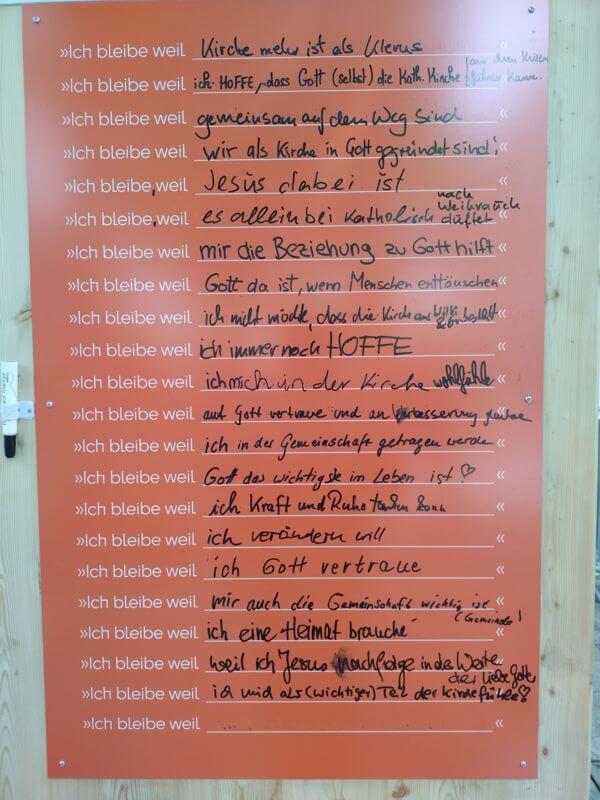 »Ich bleibe weil Kirche mehr ist als Klerus «
»Ich bleibe weil ich HOFFE, dass Gott (selbst) die Kath. Kirche (aus ihren Krisen führen kann. «
»Ich bleibe weil gemeinsam auf dem Weg sind «
»Ich bleibe weil wir als Kirche in Gott gegründet sind! «
»Ich bleibe, weil Jesus dabei ist «
»Ich bleibe, weil es allein bei Katholisch nach Weihrauch duftet «
»Ich bleibe weil mir die Beziehung zu Gott hilft «
»Ich bleibe weil Gott da ist, wenn Menschen enttäuschen «
»Ich bleibe weil ich nicht möchte, dass die Kirche aus besteht «
»Ich bleibe weil ich immer noch HOFFE «
»Ich bleibe weil ich mich in der Kirche wohlfühle «
»Ich bleibe weil auf Gott vertraue und an Verbesserung glaube «
»Ich bleibe weil ich in der Gemeinschaft getragen werde «
»Ich bleibe weil Gott das wichtigste im Leben ist! ♡ «
»Ich bleibe weil ich Kraft und Ruhe tanken kann «
»Ich bleibe weil ich verändern will «
»Ich bleibe weil ich Gott vertraue «
»Ich bleibe weil mir auch die Gemeinschaft wichtig ist (Gemeinde) «
»Ich bleibe weil ich eine Heimat brauche «
»Ich bleibe weil weil ich Jesus nachfolge in der Weite der Liebe Gottes «
»Ich bleibe weil ich mich als (wichtiger) Teil der Kirche fühle ♡ «
»Ich bleibe weil «